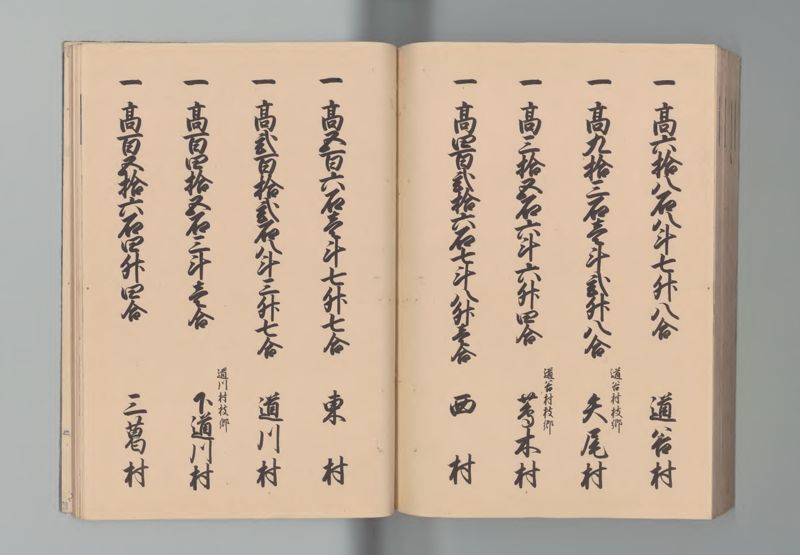 一 高六拾八石八斗七升八合 道谷村
一 高九拾三石壱斗弐升八合 道谷村枝郷 矢尾村
一 高三拾五石六斗六升四合 道谷村枝郷 蔦木村
一 高四百弐拾六石七斗八升壱合 西村
一 高五百六石壱斗七升七合 東村
一 高弐百拾弐石八斗三升七合 道川村
一 高百四拾五石三斗壱合 道川村枝郷 下道川村
一 高百五拾六石四升四合 三葛村